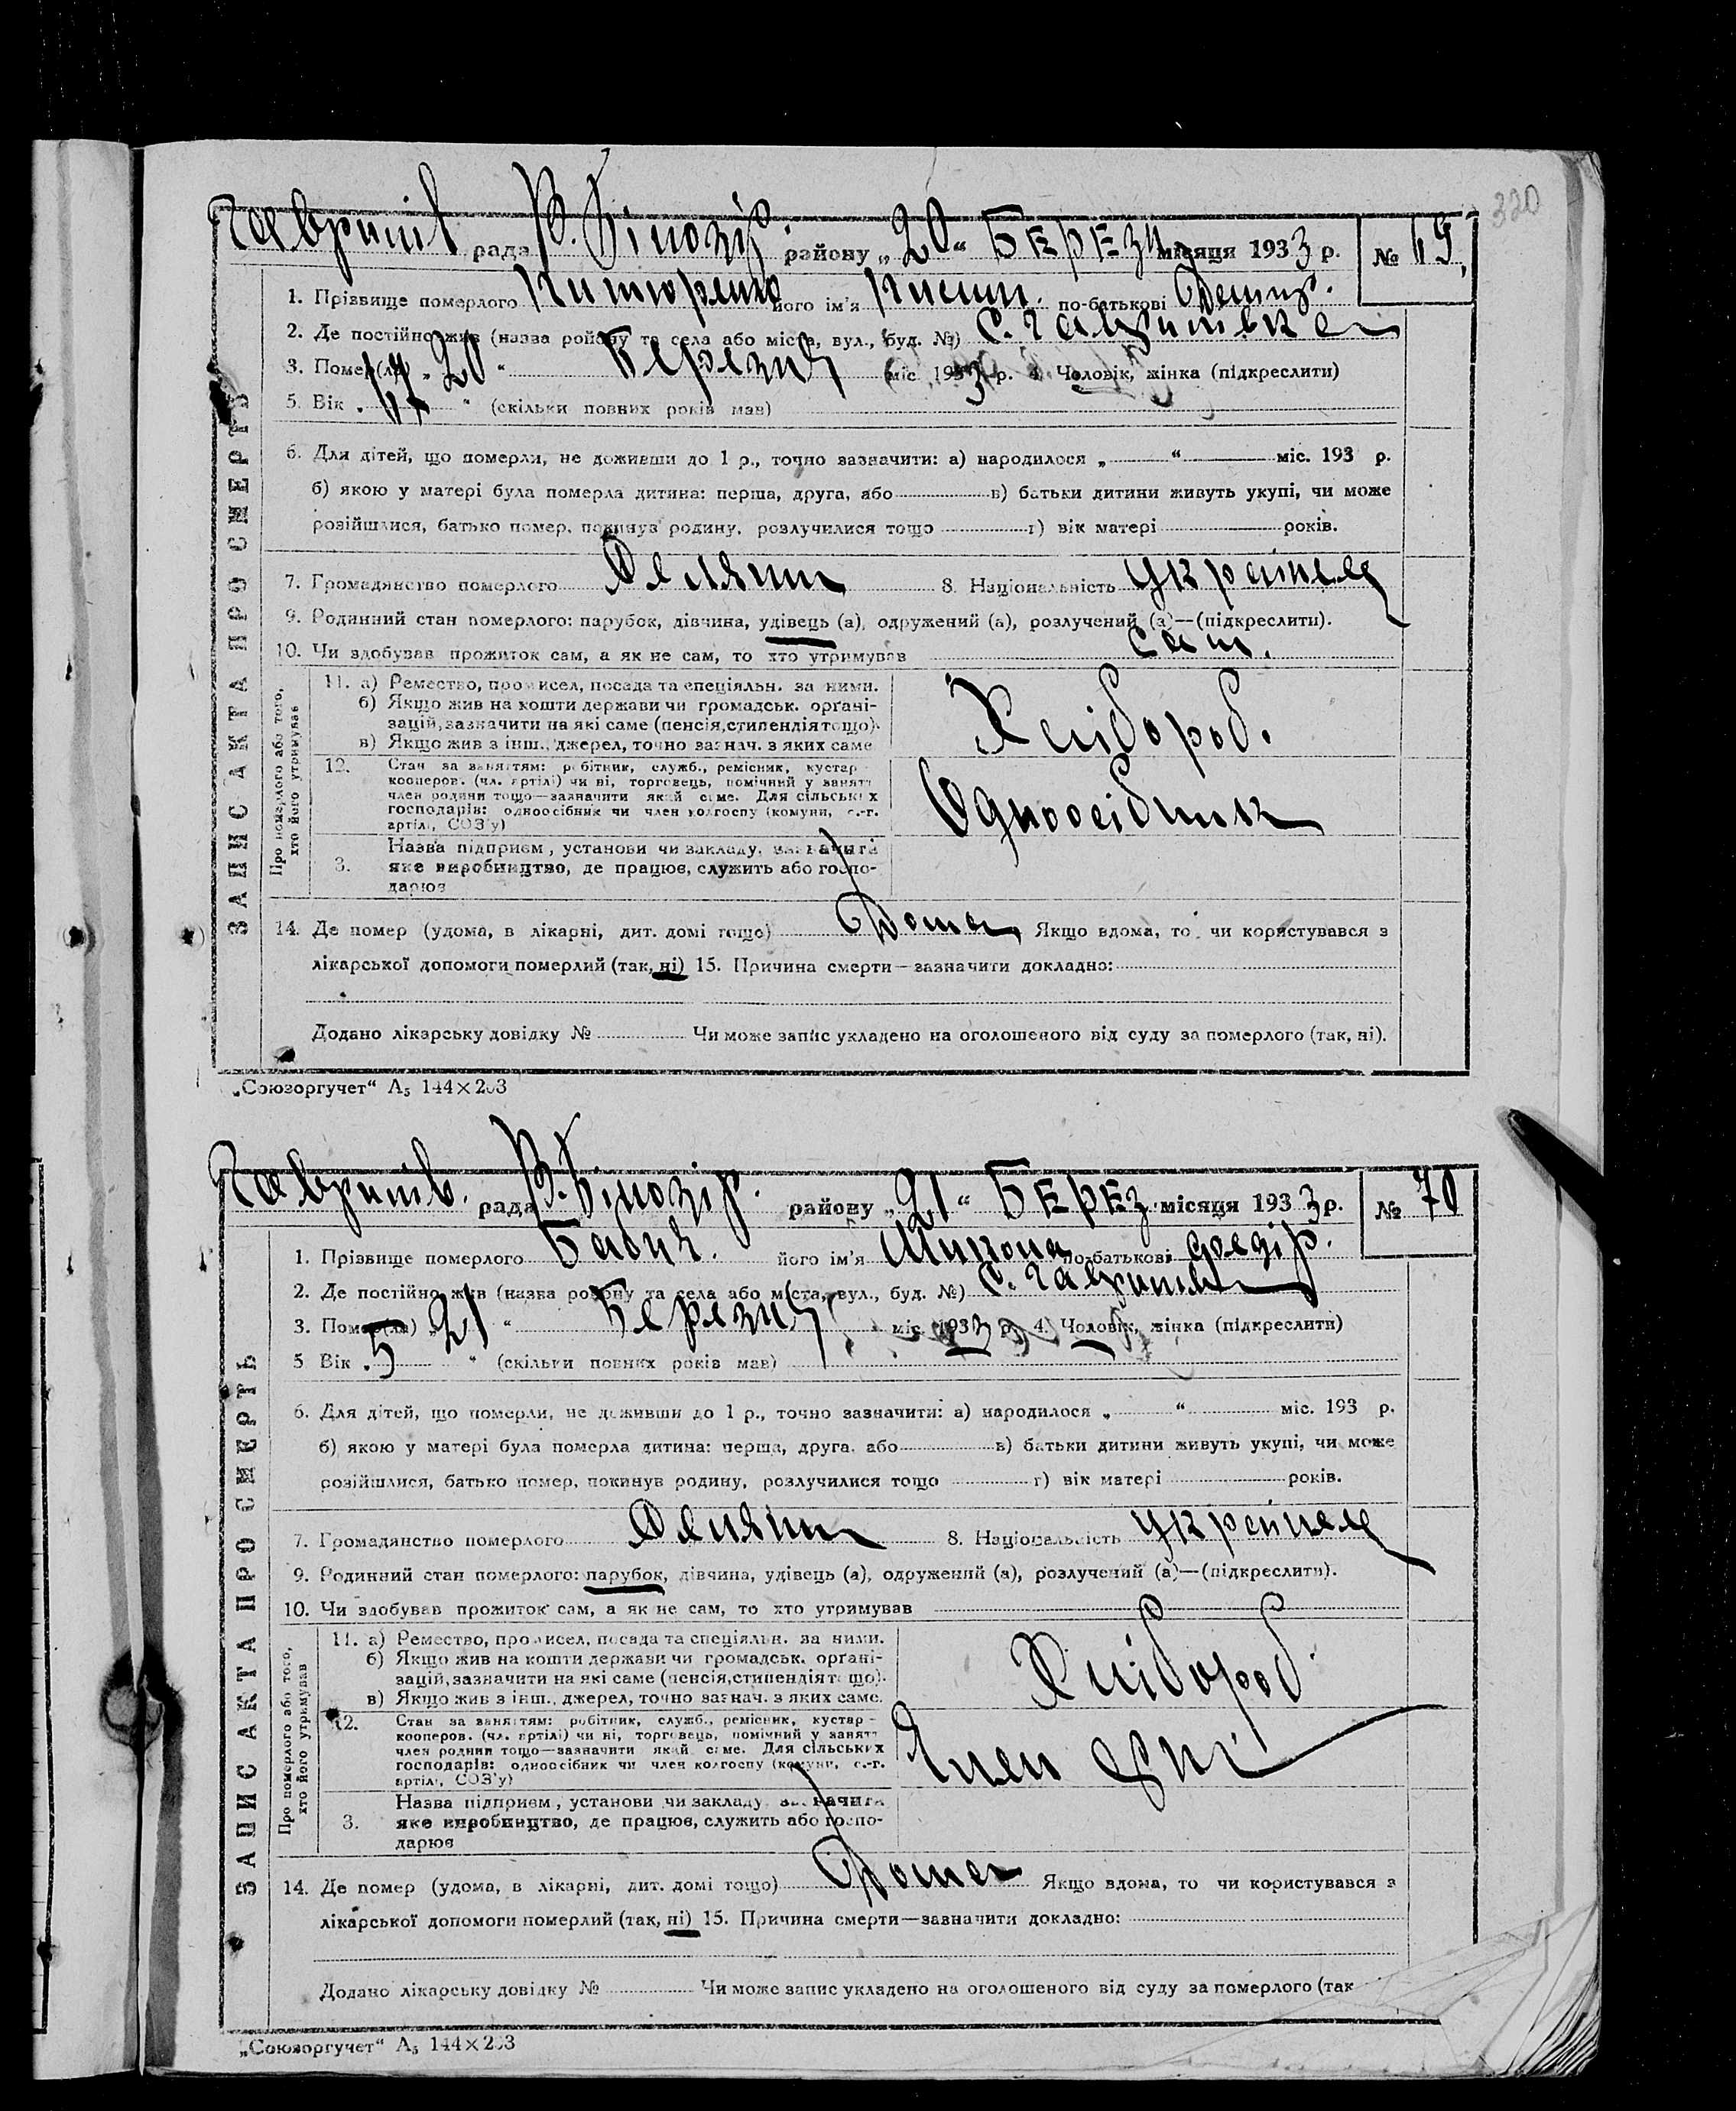 320
Гаврилів рада В. Білозір. району „20“ БЕРЕЗНЯ місяця 1933 р. №
1. Прізвище померлого його ім'я по-батькові
2. Де постійно жив (назва ройону та села або міста, вул., буд. №) с. Гаврилівка
3. Помер(ла) „20“ Березня міс. 1933 р. 4. Чоловік, жінка (підкреслити)
5. Вік „ “ (скільки повних років мав)
6. Для дітей, що померли, не доживши до 1 р., точно зазначити: а) народилося „ “ міс. 193 р.
б) якою у матері була померла дитина: перша, друга, або в) батьки дитини живуть укупі, чи може
розійшлися, батько помер, покинув родину, розлучилися тощо г) вік матері років.
7. Громадянство померлого Селянин 8. Національність українец
9. Родинний стан померлого: парубок, дівчина, удівець (а), одружений (а), розлучений (а)—(підкреслити).
10. Чи здобував прожиток сам, а як не сам, то хто утримував сам.
ЗАПИС АКТА ПРО СМЕРТЬ
Про померлого або того,
хто його утримував
11. а) Ремество, промисел, посада та спеціяльн. за ними.
б) Якщо жив на кошти держави чи громадськ. орґані-
зацій, зазначити на які саме (пенсія, стипендія тощо).
в) Якщо жив з інш., джерел, точно зазнач. з яких саме
Хлібороб.
12. Стан за заняттям: робітник, служб., ремісник, кустар-
кооперов. (чл. артілі) чи ні, торговець, помічний у занятт
член родини тощо—зазначити який саме. Для сільських
господарів: одноосібник чи член колгоспу (комуни, с.-г.
артілі, СОЗ'у)
Одноосібник
3. Назва підприєм, установи чи закладу, зазначити
яке виробництво, де працює, служить або госпо-
дарює
14. Де помер (удома, в лікарні, дит. домі тощо) Дома Якщо вдома, то чи користувався з
лікарської допомоги померлий (так, ні) 15. Причина смерти—зазначити докладно:
Додано лікарську довідку № Чи може запис укладено на оголошеного від суду за померлого (так, ні).
„Союзоргучет“ А5 144×203
Гаврилів. рада В. Білозір. району „21“ БЕРЕЗ. місяця 1933 р. № 70
1. Прізвище померлого Бабич. його ім'я Микола по-батькові Федір.
2. Де постійно жив (назва ройону та села або міста, вул., буд. №) с. Гаврилівка
3. Помер(ла) „21“ Березня міс. 1933 р. 4. Чоловік, жінка (підкреслити)
5 Вік „5 “ (скільки повних років мав)
6. Для дітей, що померли, не доживши до 1 р., точно зазначити: а) народилося „ “ міс. 193 р.
б) якою у матері була померла дитина: перша, друга, або в) батьки дитини живуть укупі, чи може
розійшлися, батько помер, покинув родину, розлучилися тощо г) вік матері років.
7. Громадянство померлого Селянин 8. Національність українец
9. Родинний стан померлого: парубок, дівчина, удівець (а), одружений (а), розлучений (а)—(підкреслити).
10. Чи здобував прожиток сам, а як не сам, то хто утримував
ЗАПИС АКТА ПРО СМЕРТЬ
Про померлого або того,
хто його утримував
11. а) Ремество, промисел, посада та спеціяльн. за ними.
б) Якщо жив на кошти держави чи громадськ. орґані-
зацій, зазначити на які саме (пенсія, стипендія тощо).
в) Якщо жив з інш., джерел, точно зазнач. з яких саме.
Хлібороб
12. Стан за заняттям: робітник, служб., ремісник, кустар-
кооперов. (чл. артілі) чи ні, торговець, помічний у занятт
член родини тощо—зазначити який саме. Для сільських
господарів: одноосібник чи член колгоспу (комуни, с.-г.
артілі, СОЗ'у)
Член
3. Назва підприєм, установи чи закладу зазначити
яке виробництво, де працює, служить або госпо-
дарює
14. Де помер (удома, в лікарні, дит. домі тощо) Дома Якщо вдома, то чи користувався з
лікарської допомоги померлий (так, ні) 15. Причина смерти—зазначити докладно:
Додано лікарську довідку № Чи може запис укладено на оголошеного від суду за померлого (так
„Союзоргучет“ А5 144×203